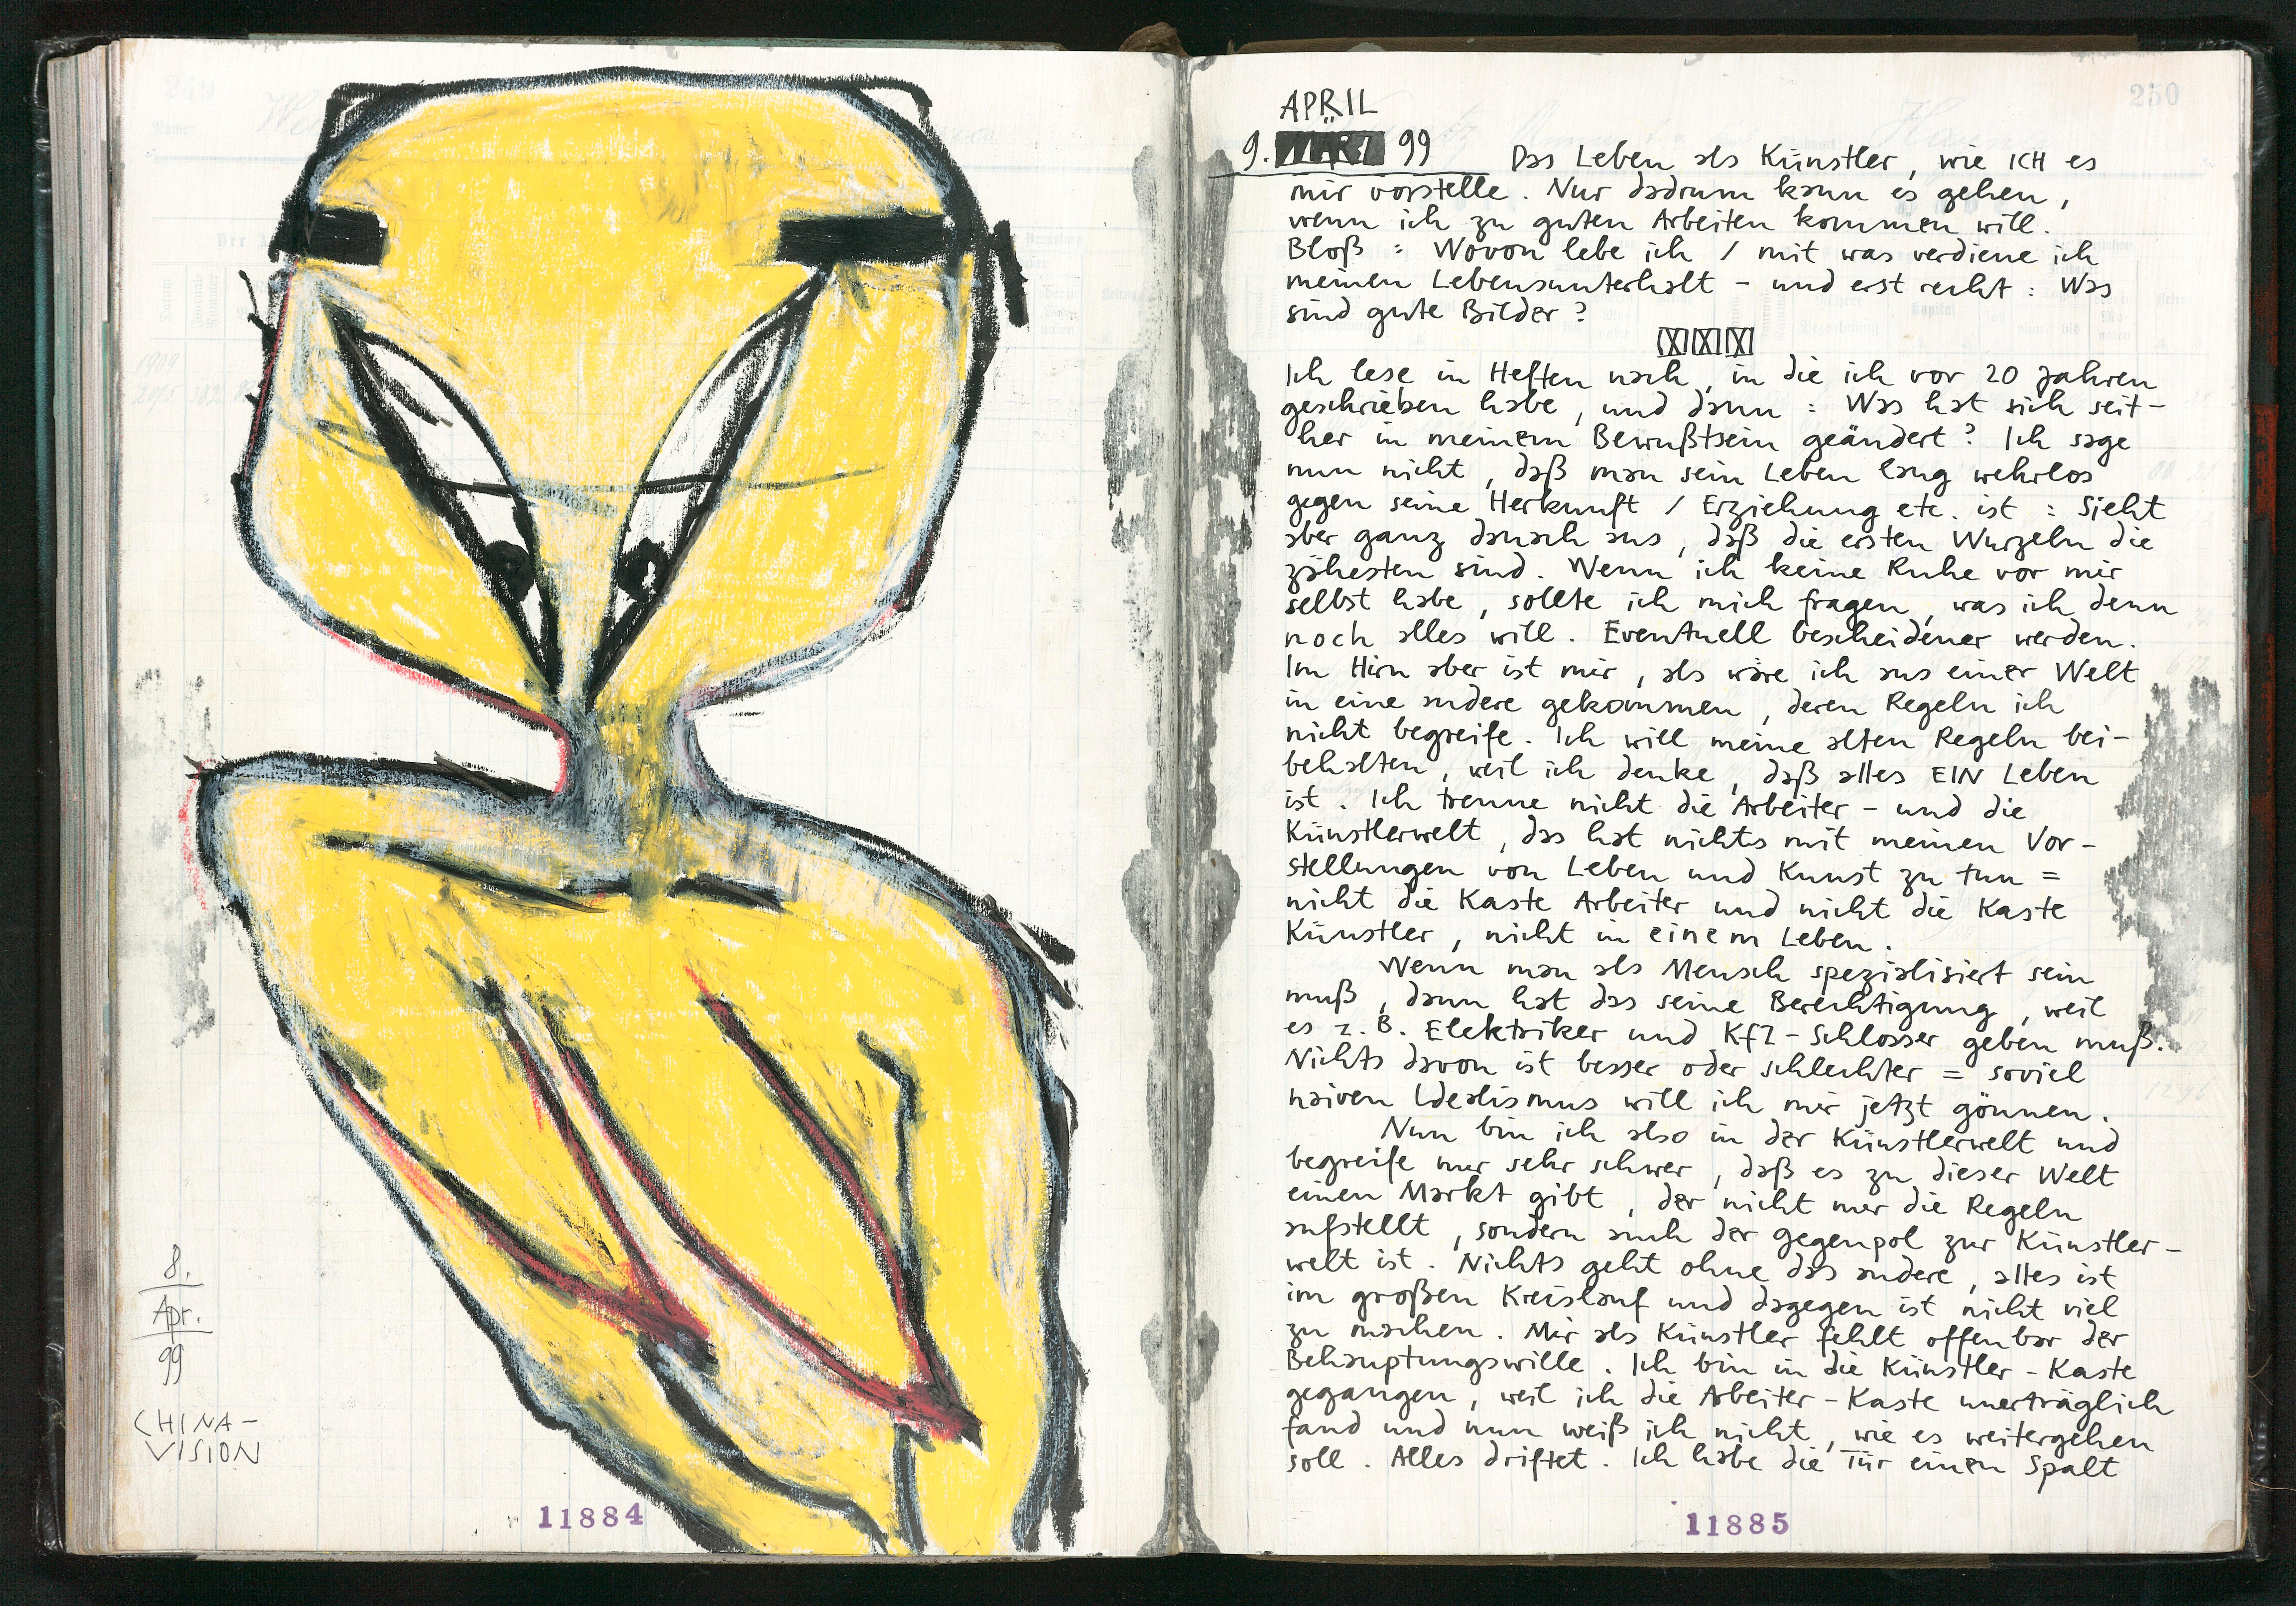 8.
Apr.
99
CHINA-
VISION
11884
250
APRIL
9. MÄRZ 99 Das Leben als Künstler, wie ICH es
mir vorstelle. Nur dadrum kann es gehen,
wenn ich zu guten Arbeiten kommen will.
Bloß : Wovon lebe ich / mit was verdiene ich
meinen Lebensunterhalt - und erst recht : Was
sind gute Bilder ?
Ich lese in Heften nach, in die ich vor 20 Jahren
geschrieben habe, und dann : Was hat sich seit-
her in meinem Bewußtsein geändert ? Ich sage
nun nicht, daß man sein Leben lang wehrlos
gegen seine Herkunft / Erziehung etc. ist : Sieht
aber ganz danach aus, daß die ersten Wurzeln die
zähesten sind. Wenn ich keine Ruhe vor mir
selbst habe, sollte ich mich fragen, was ich denn
noch alles will. Eventuell bescheidener werden.
Im Hirn aber ist mir, als wäre ich aus einer Welt
in eine andere gekommen, deren Regeln ich
nicht begreife. Ich will meine alten Regeln bei-
behalten, weil ich denke, daß alles EIN Leben
ist. Ich trenne nicht die Arbeiter- und die
Künstlerwelt, das hat nichts mit meinen Vor-
stellungen von Leben und Kunst zu tun =
nicht die Kaste Arbeiter und nicht die Kaste
Künstler, nicht in einem Leben.
Wenn man als Mensch spezialisiert sein
muß, dann hat das seine Berechtigung, weil
es z. B. Elektriker und Kfz-Schlosser geben muß.
Nichts davon ist besser oder schlechter = soviel
naiven Idealismus will ich mir jetzt gönnen.
Nun bin ich also in der Künstlerwelt und
begreife nur sehr schwer, daß es zu dieser Welt
einen Markt gibt, der nicht nur die Regeln
aufstellt, sondern auch der Gegenpol zur Künstler-
welt ist. Nichts geht ohne das andere, alles ist
im großen Kreislauf und dagegen ist nicht viel
zu machen. Mir als Künstler fehlt offenbar der
Behauptungswille. Ich bin in die Künstler-Kaste
gegangen, weil ich die Arbeiter-Kaste unerträglich
fand und nun weiß ich nicht, wie es weitergehen
soll. Alles driftet. Ich habe die Tür einen Spalt
11885